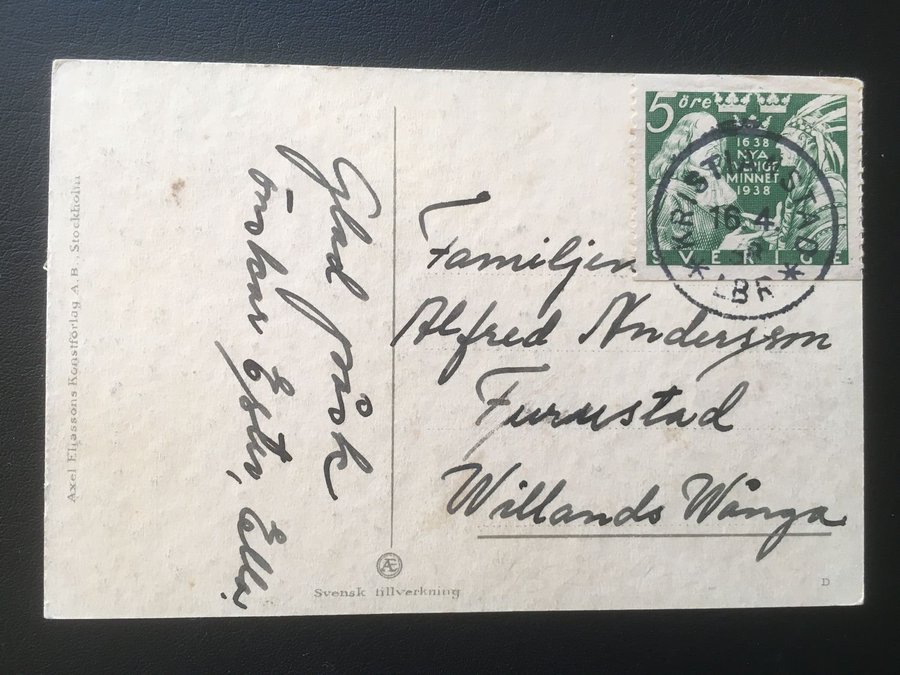 Axel Eliassons Konstförlag A.B., Stockholm
Glad påsk
önskar Ester, Ella.
5 öre
1638
NYA
SVERIGE
MINNET
1938
SVERIGE
KRISTIANSTAD
16.4.
38
* LBR *
Familjen
Alfred Andersson
Furustad
Willands Wånga
Æ
Svensk tillverkning
D